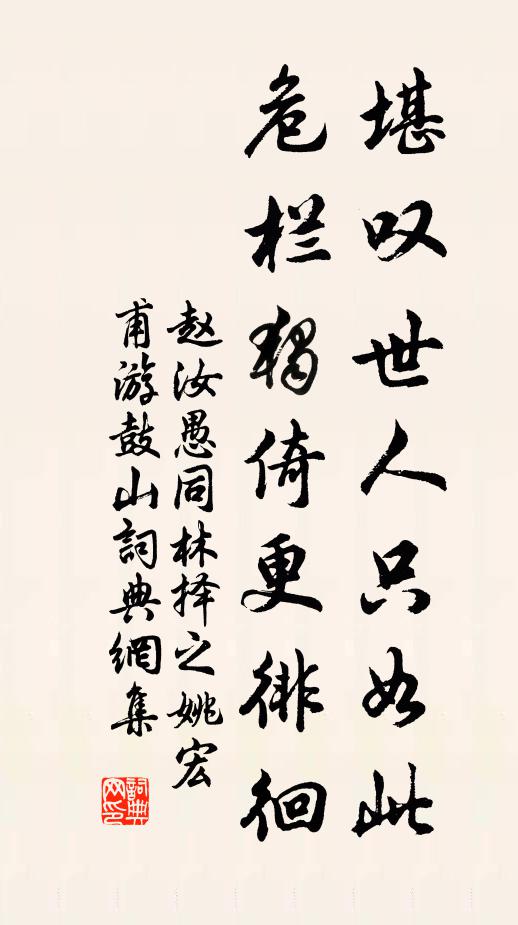 堪叹世人只如此
危栏独倚更徘徊
赵汝愚同林择之姚宏
甫游鼓山詞典網集
詞典
网印